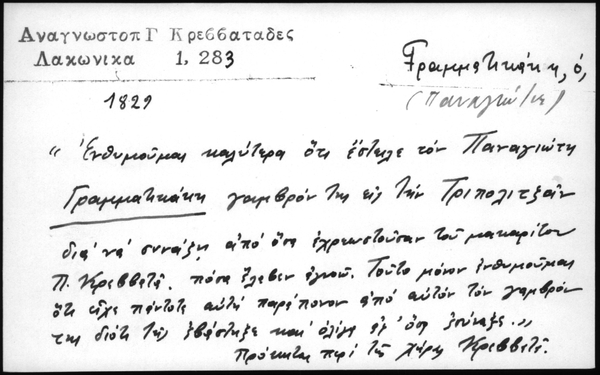 Αναγνωστοπ Γ Κρεββαταδες
Λακωνικα 1, 283
Γραμματικάκη, ὁ,
(Παναγιώτης)
1829
"Ἐνθυμοῦμαι καλύτερα ὅτι ἔστειλε τὸν Παναγιώτη
Γραμματικάκη γαμβρόν της εἰς τὴν Τριπολιτζὰν
διὰ νὰ συνάξῃ ἀπὸ ὅσα ἐχρεωστοῦσαν τοῦ μακαρίτου
Π. Κρεββατᾶ. πόσα ἔλαβεν ἀγνοῶ. Τοῦτο μόνον ἐνθυμοῦμαι
ὅτι εἶχε πάντοτε αὐτὴ παράπονον ἀπὸ αὐτὸν τὸν γαμβρόν
της διότι τῆς ἐβάσταξε καὶ ὀλίγα ἀπ' ὅσα ἐσύναξε.,,
Πρόκειται περὶ τῆς χήρας Κρεββατᾶ.